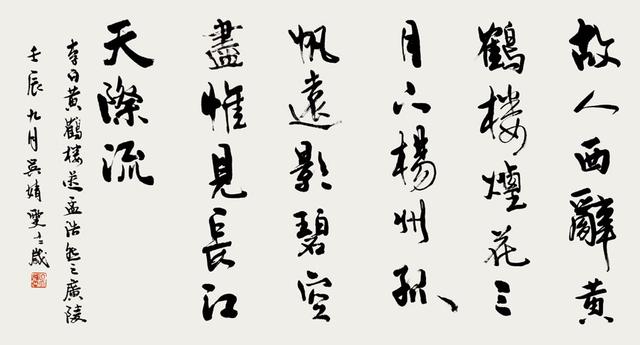 故人西辭黃
鶴樓煙花三
月下楊州孤
帆遠影碧空
盡惟見長江
天際流
李白黃鶴樓送孟浩然之廣陵
壬辰九月吳婧雯十二歲